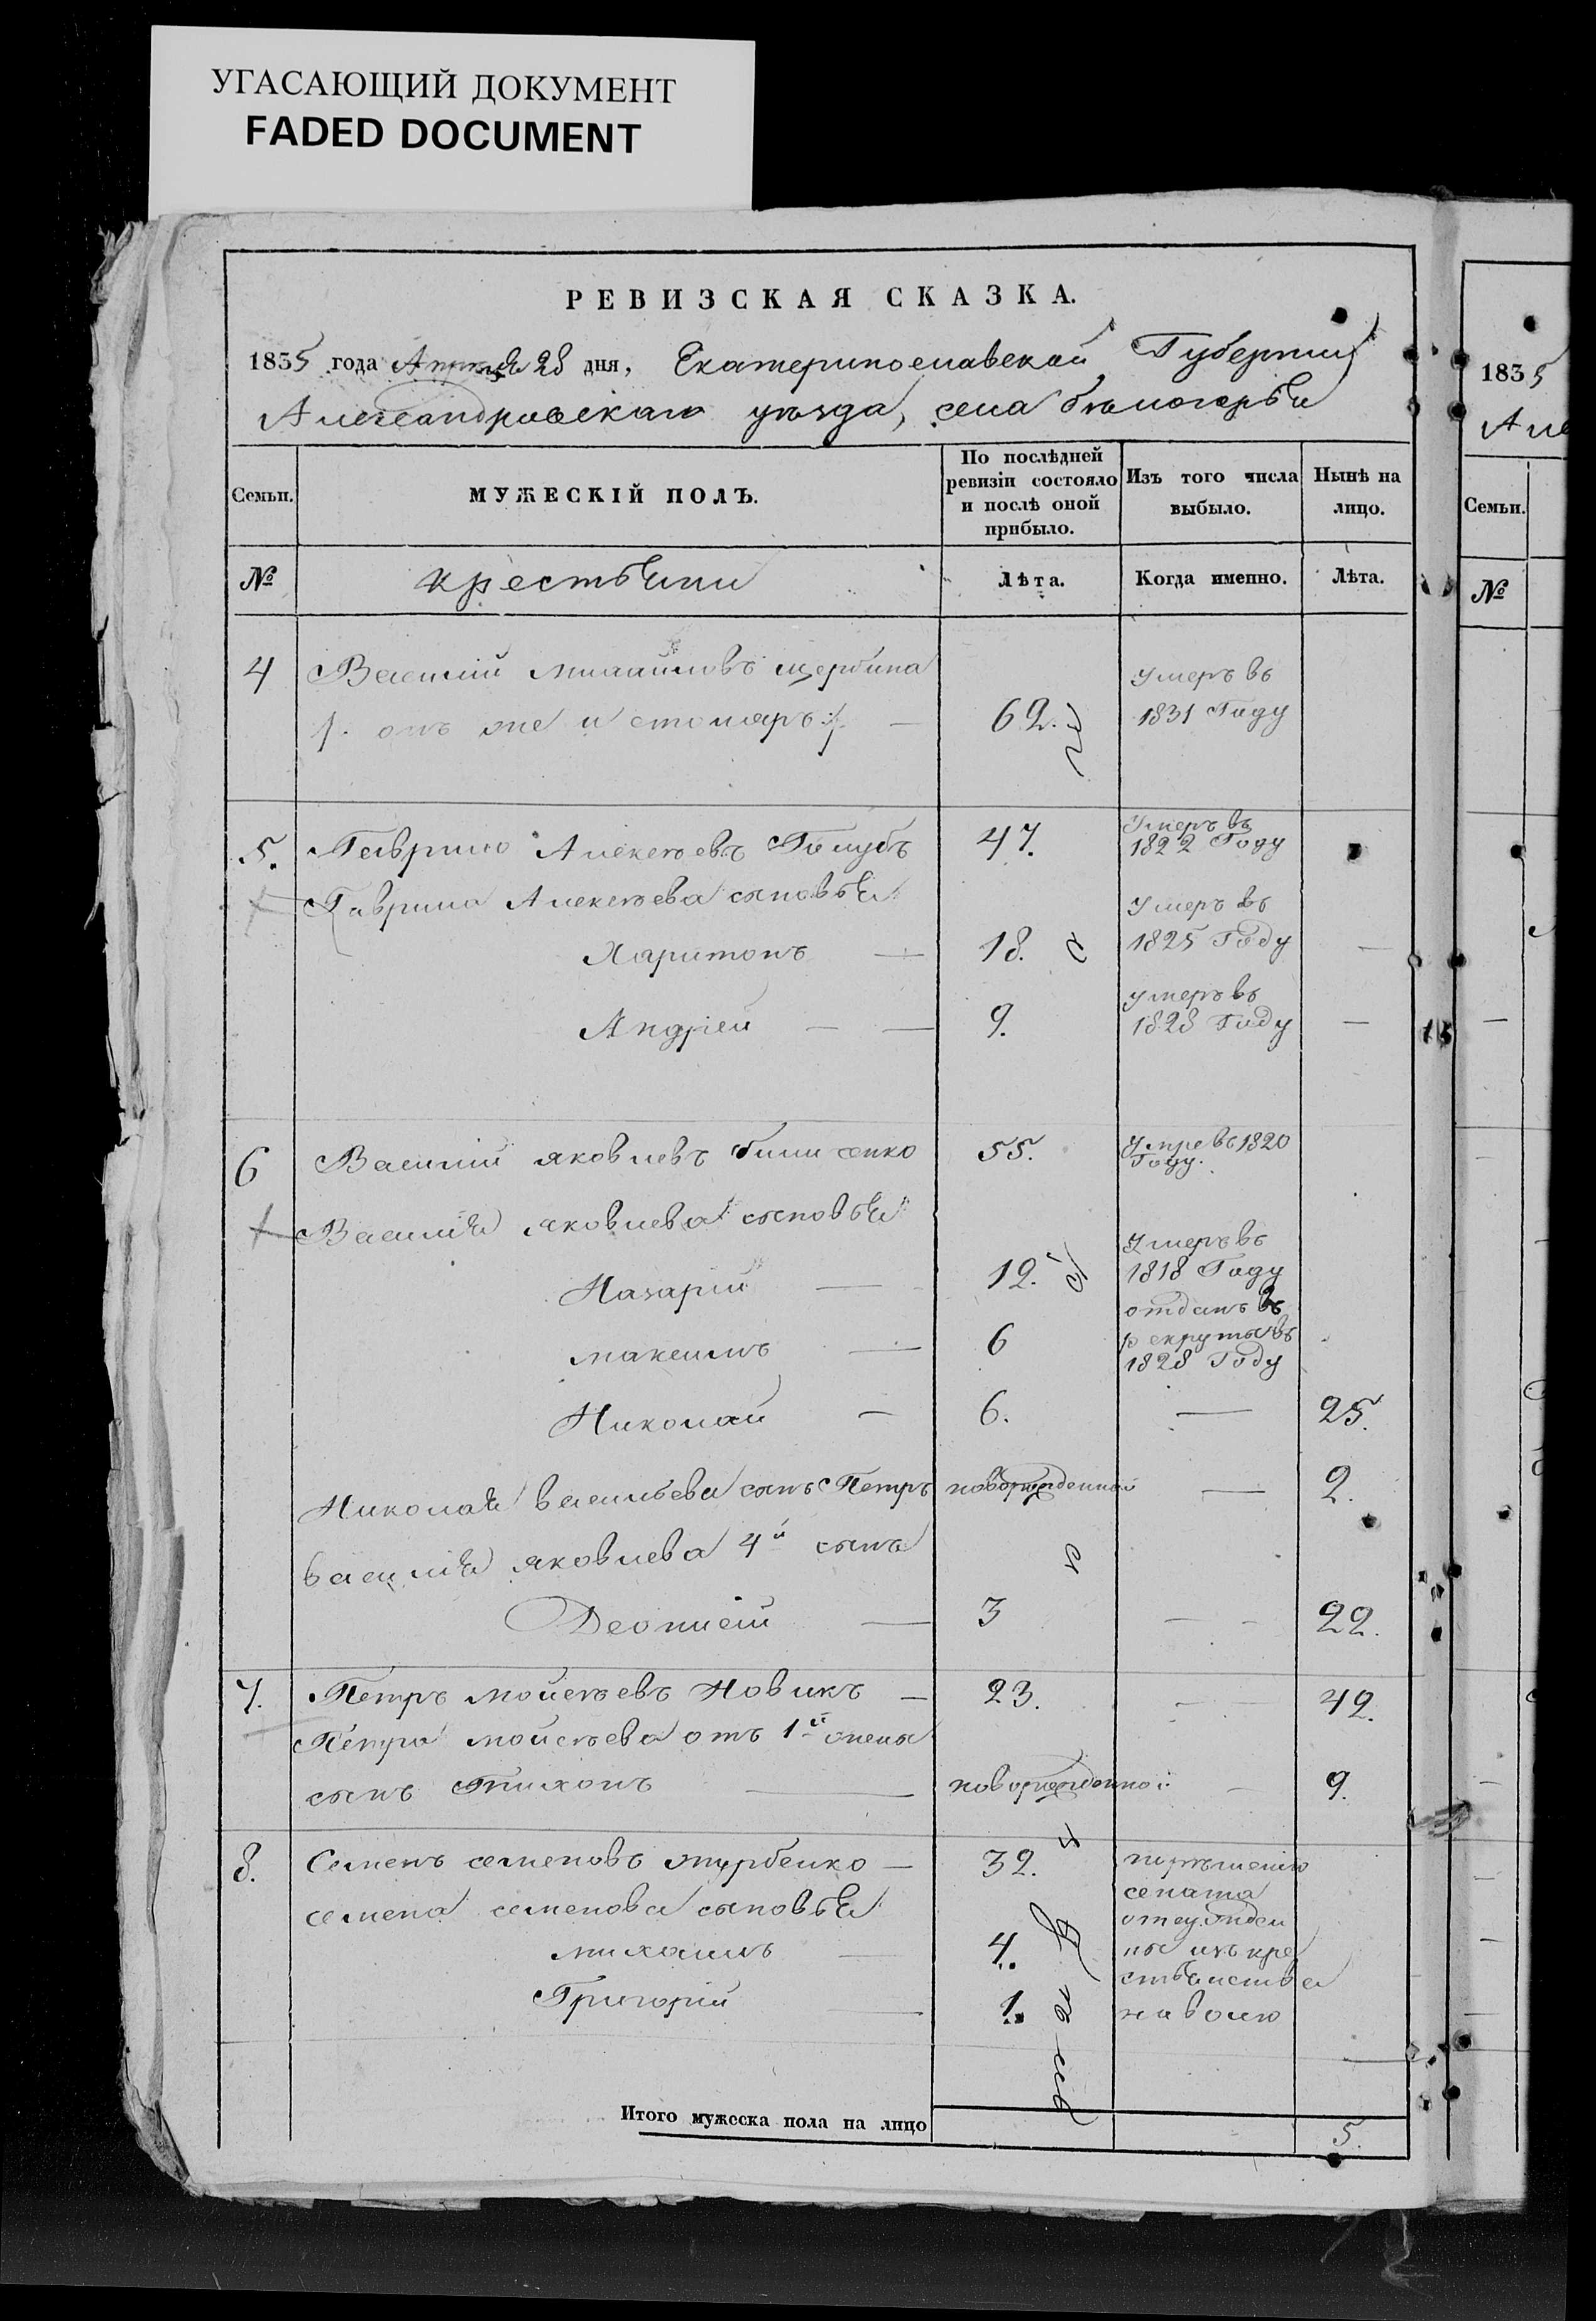 УГАСАЮЩИЙ ДОКУМЕНТ
FADED DOCUMENT
РЕВИЗСКАЯ СКАЗКА.
1835 года Апреля 28 дня, Екатеринославской Губернии
Александровскаго уезда, села бѣлогорья
Семьи.
МУЖЕСКІЙ ПОЛЪ.
По послѣдней ревизіи состояло и послѣ оной прибыло.
Изъ того числа выбыло.
Нынѣ на лицо.
№
крестьяни
Лѣта.
Когда именно.
Лѣта.
4 Василий михайловъ щербина умеръ въ
/. онъ же и столяръ ./. — 62. 1831 Году
5. Гаврило Алексѣевъ Голубъ 47. Умеръ въ 1822 Году
Гаврила Алексѣева сыновья умеръ въ
Харитонъ — 18. 1825 Году —
Андрей — — 9. умеръ въ 1828 Году —
6 Василий яковлевъ 55. умре въ 1820 Году.
Василия яковлева сыновья
Назарій — 12. Умеръ въ 1818 Году
максимъ — 6 отданъ въ рекруты въ 1828 Году
Николай — 6. — 25.
Николая васильева сынъ Петръ новорожденный — 2.
василия яковлева 4й сынъ
Деонисій — 3 — - 22.
7. Петръ мойсѣевъ Новикъ — 23. - — 42.
Петра мойсѣева отъ 1й жены
сынъ Тихонъ — новорожденной — 9.
8. Семенъ семеновъ — 32. по решению
семена семенова сыновья сената
михаилъ — 4. ны изъ кре
Григорій — 1. стьянства
на волю
Итого мужеска пола на лицо 5.
1835
Але
Семьи.
№